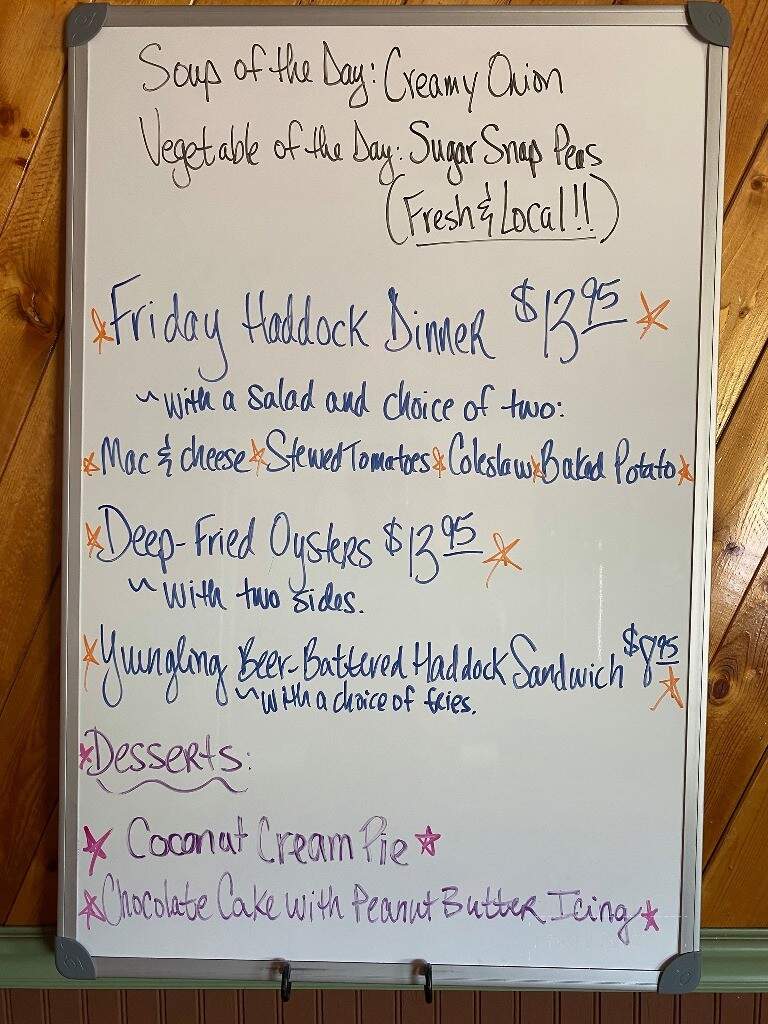 Soup of the Day: Creamy Onion
Vegetable of the Day: Sugar Snap Peas
(Fresh & Local!!)
Friday Haddock Dinner $13.95
~with a salad and choice of two:
Mac & cheese Stewed Tomatoes Coleslaw Baked Potato
Deep-Fried Oysters $13.95
~with two sides.
Yuengling Beer-Battered Haddock Sandwich $8.95
~with a choice of fries.
Desserts:
Coconut Cream Pie
Chocolate Cake with Peanut Butter Icing